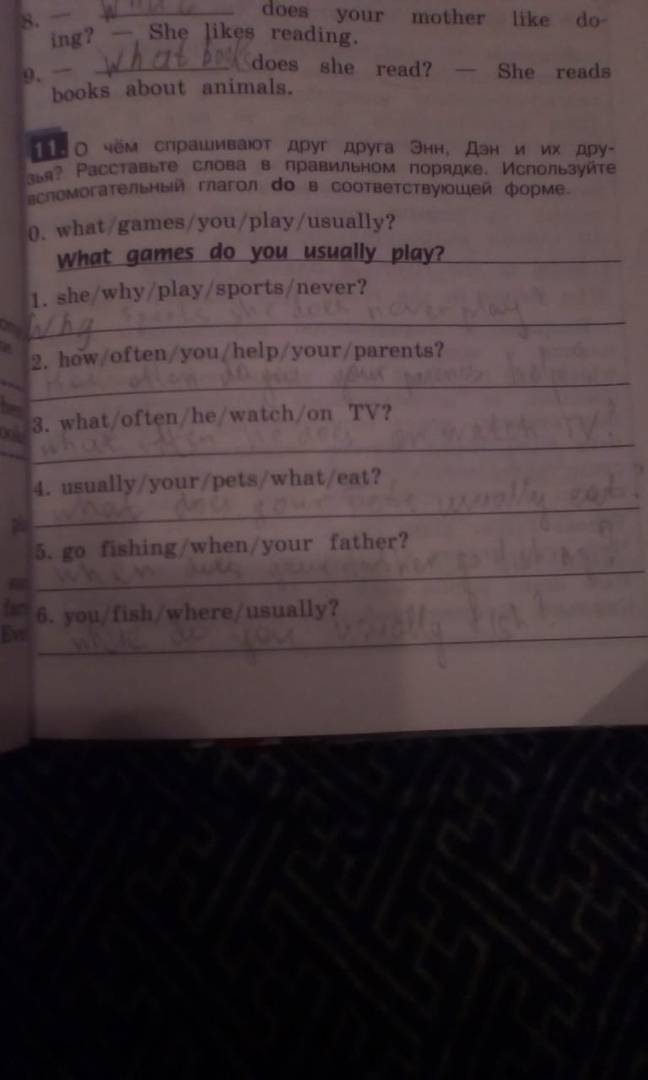 8. — What does your mother like do-
ing? — She likes reading.
9. — What books does she read? — She reads
books about animals.
11. О чём спрашивают друг друга Энн, Дэн и их дру-
зья? Расставьте слова в правильном порядке. Используйте
вспомогательный глагол do в соответствующей форме.
0. what/games/you/play/usually?
What games do you usually play?
1. she/why/play/sports/never?
Why sports she does never play
2. how/often/you/help/your/parents?
How often do you your parents help
3. what/often/he/watch/on TV?
what often he does on watch TV?
4. usually/your/pets/what/eat?
what does your pets usually eat?
5. go fishing/when/your father?
when does your father go fishing?
6. you/fish/where/usually?
where do you usually fish